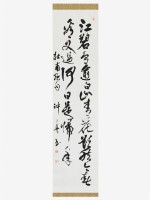 江碧鳥逾白山青花欲然今春
看又過何日是歸年
杜甫絶句